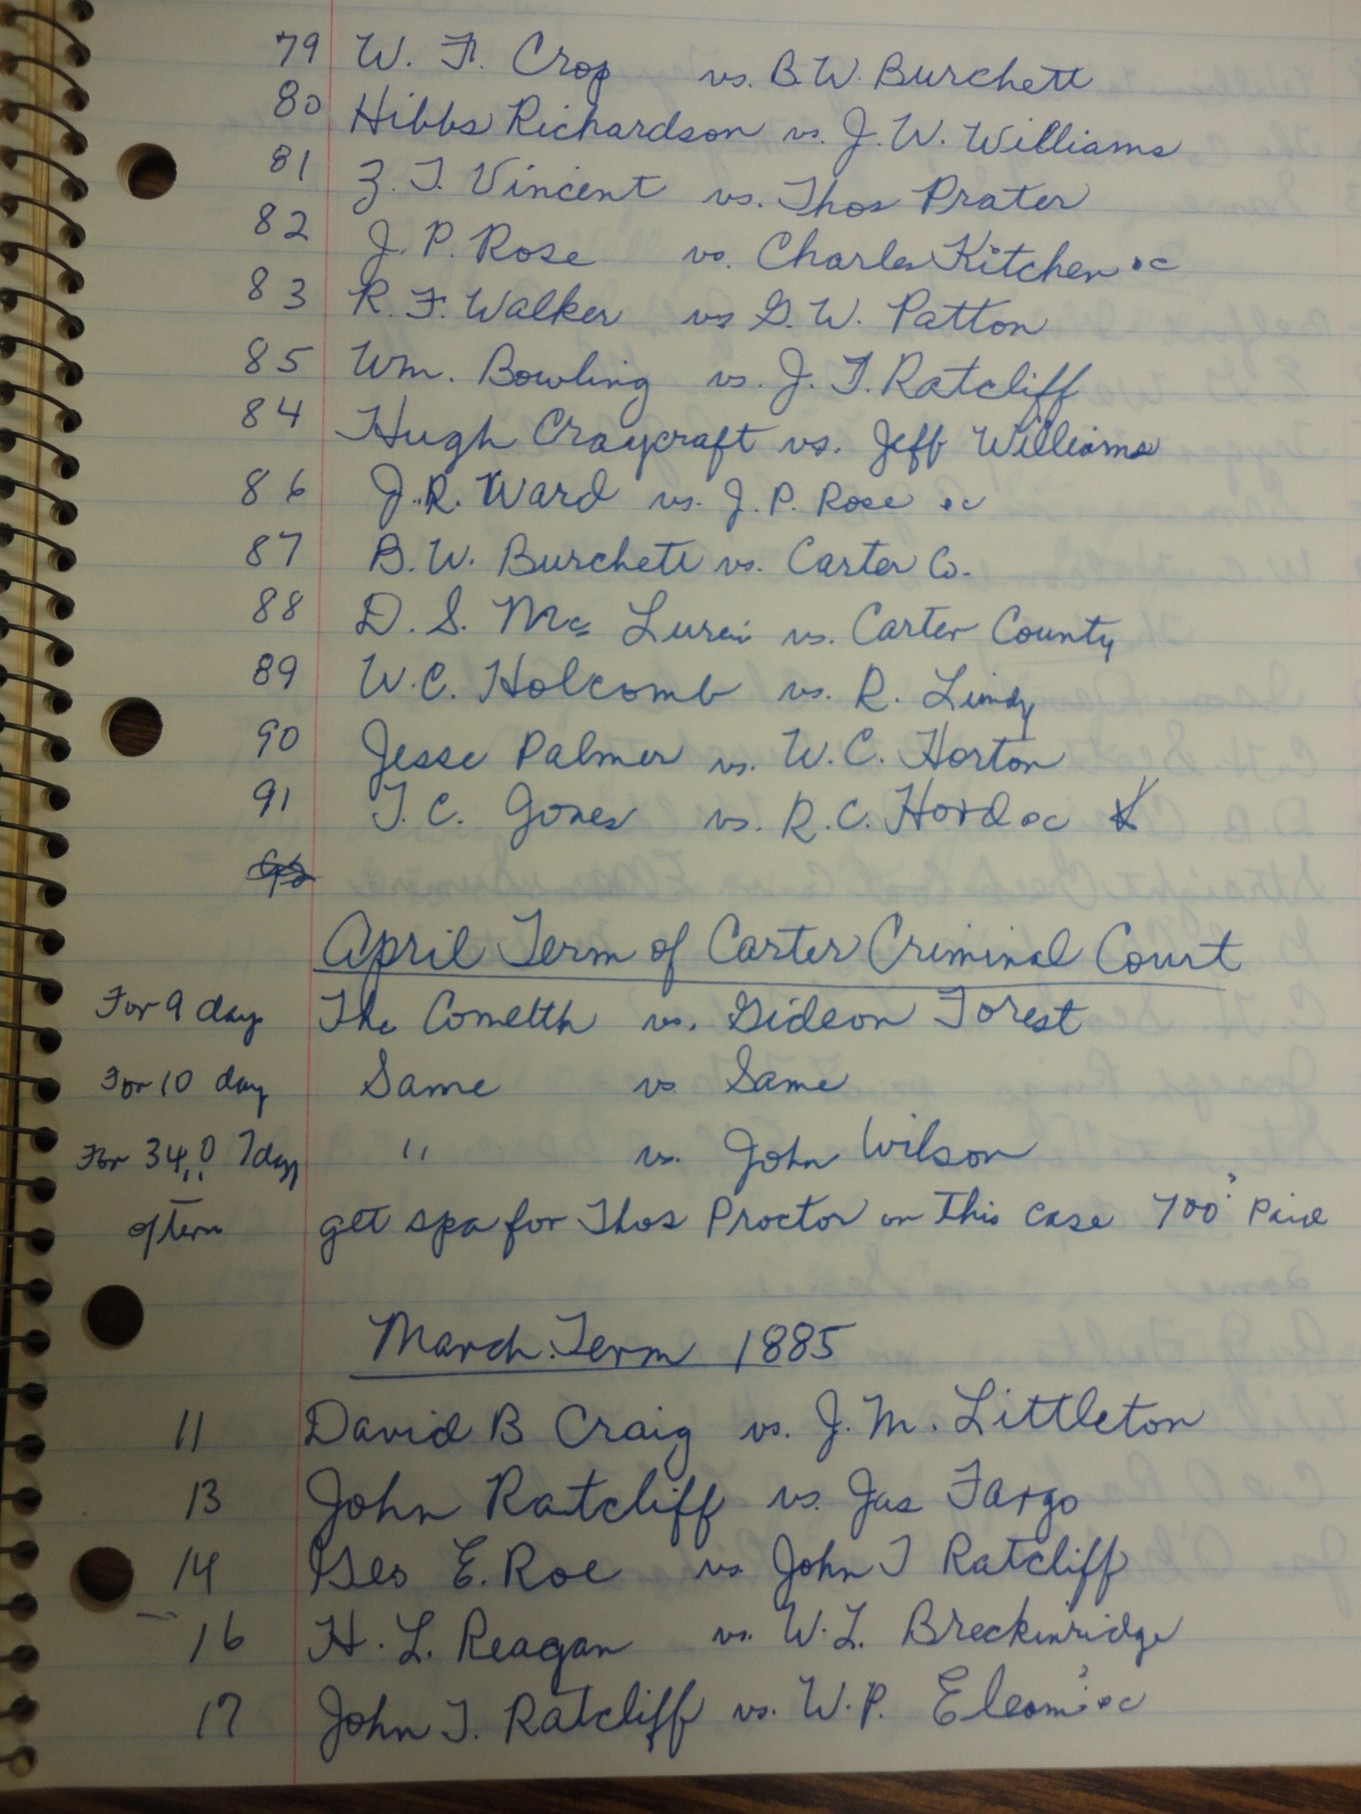 79 W. F. Crop vs. B.W. Burchett
80 Hibbs Richardson vs. J. W. Williams
81 Z. T. Vincent vs. Thos Prater
82 J. P. Rose vs. Charles Kitchen &c
83 R. F. Walker vs G. W. Patton
85 Wm. Bowling vs. J. T. Ratcliff
84 Hugh Craycraft vs. Jeff Williams
86 J. R. Ward vs. J. P. Rose &c
87 B. W. Burchett vs. Carter Co.
88 D. S. Mc vs. Carter County
89 W. C. Holcomb vs. R.
90 Jesse Palmer vs. W. C. Horton
91 T. C. Jones vs. R. C. Hord &c
April Term of Carter Criminal Court
For 9 day The Comelth vs. Gideon Forest
For 10 day Same vs. Same
For 7 day " vs. John Wilson
of term get spa for Thos Proctor on This case 700 Paid
March Term 1885
11 David B Craig vs. J. M. Littleton
13 John Ratcliff vs. Jas Fargo
14 Geo E. Roe vs John T Ratcliff
16 H. L. Reagan vs. W. L. Breckinridge
17 John T. Ratcliff vs. W. P. &c